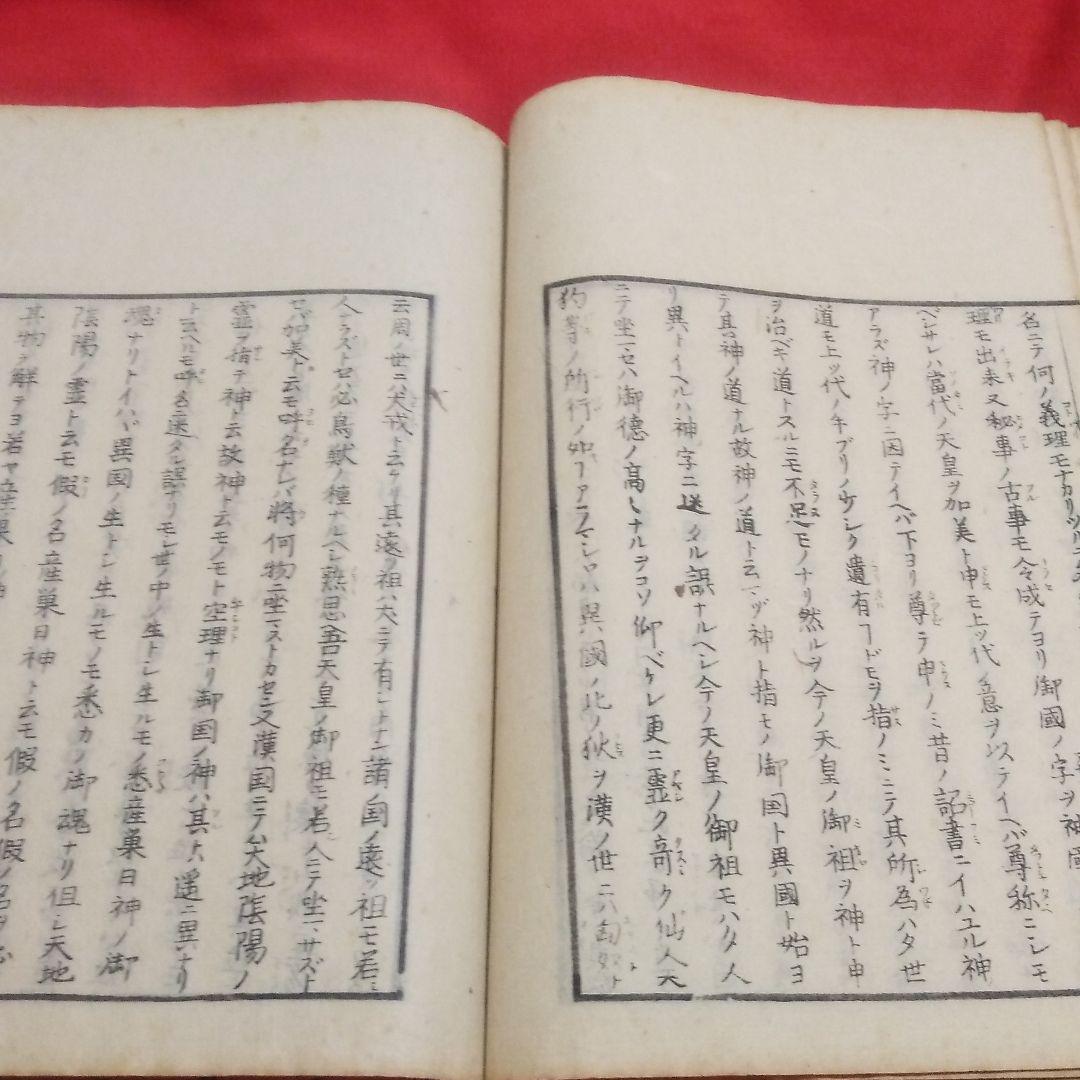 名ニテ何ノ義理モナカリツル
理モ出来又秘事ノ古事モ令成テヨリ御國ノ字ヲ神
ベシサレハ當代ノ天皇ヲ加美ト申モ上ッ代ノ意ヲ以ステイヘバ尊称ニシモ
アラズ神ノ字ニ因テイヘバ下ヨリ尊テ申ノミ昔ノ詔書ニイハユル神
道モ上ッ代ノテブリノウシク遺有ヿドモヲ指ノミニテ其所為ハタ世
ヲ治ベキ道トスルニモ不足モノナリ然ルヲ今ノ天皇ノ御祖ヲ神ト申
テ其神ノ道ナル故神ノ道ト云マヅ神ト指モノ御国ト異國ト始ヨ
リ異トイヘルハ神字ニ迷タル誤ナルヘシ今ノ天皇ノ御祖モハタ人
ニテ坐マセハ御徳ノ高シナルヲコソ仰ベケレ更ニ霊ク奇ク仙人天
狗等ノ所行ノ如ファラマシロハ異國ノ北ノ狄ヲ漢ノ世ニハ匈奴ト
云周ノ世ニ犬戎ト云ケリ其遠ツ祖ハ犬ニテ有シトナン諸国ノ遠ッ祖モ若シ
人ナラズトセハ必鳥獣ノ種ナルヘシ熟思吾天皇ノ御祖ニ若人ニテ坐マサズト
只加美ト云モ呼名ナレバ將何物ニ坐マストカセン又漢国ニテハ天地陰陽ノ
霊ヲ指テ神ト云故神ト云モノモト空理ナリ御国ノ神ハ其ト遥ニ異ナリ
ト云ヘルモ呼名ニ迷タル誤ナリモシ世ノ中ノ生トシ生ルモノ悉産巣日神ノ御
魂ナリトイハバ異国ノ生トシ生ルモノモ悉カノ御魂ナリ但シ天地
陰陽ノ霊ト云モ假ノ名産巣日神ト云モ假ノ名假ノ名ヲ
其物ヲ解テヨ若ヤ